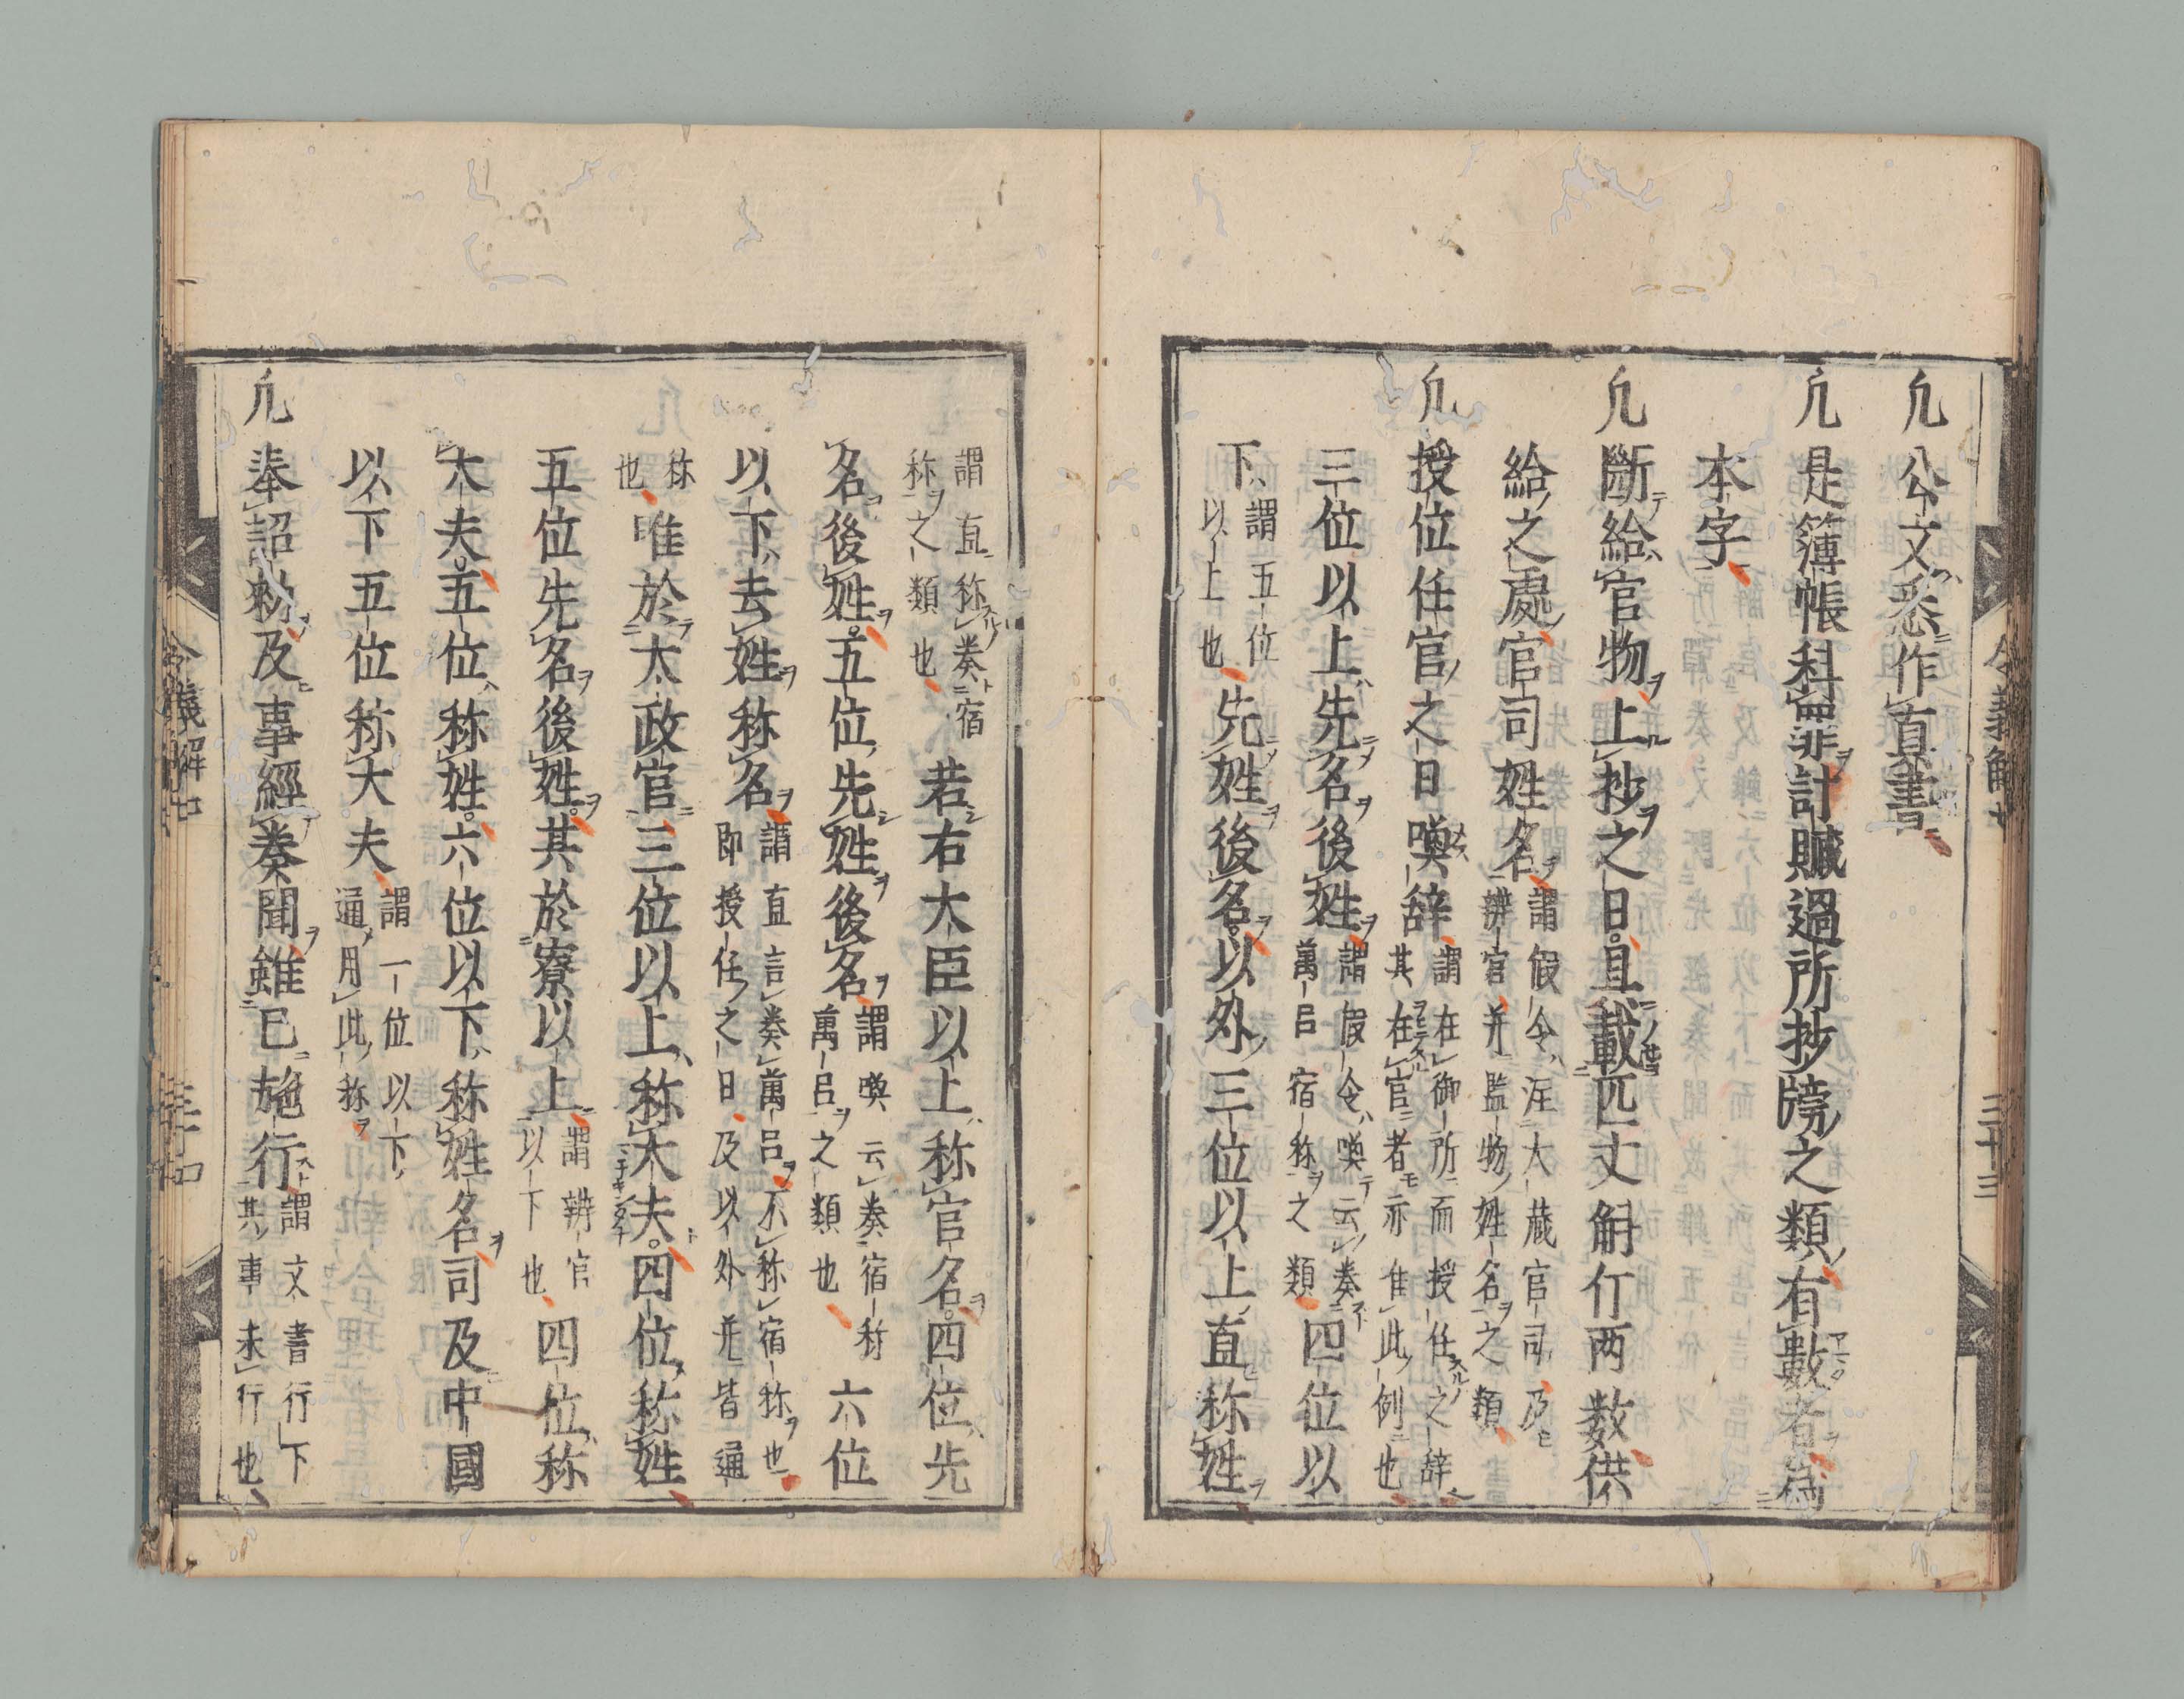 凢公文悉作真書
凢是簿帳科罪計贓過所抄牓之類有數者為
本字
凢斷給官物上抄之日且載匹丈斛斤两数供
給之處官司姓名謂假令注大蔵官司及
辨官并監物姓名之類
凢授位任官之日喚辞謂在御所而授任之辞
其在官者亦准此例也
三位以上先名後姓謂假令喚云奏
萬呂宿祢之類四位以
下謂五位
以上也先姓後名以外三位以上直称姓
令義解七
三十三
謂直称奏宿
祢之類也若右大臣以上称官名四位先
名後姓五位先姓後名謂喚云奏宿祢
萬呂之類也六位
以下去姓称名謂直言奏萬呂不称宿祢也
即授任之日及以外并皆通
称
也唯於太政官三位以上称大夫四位称姓
五位先名後姓其於寮以上謂辨官
以下也四位称
大夫五位称姓六位以下称姓名司及中國
以下五位称大夫謂一位以下
通用此称
凢奉詔勅及事經奏聞雖已施行謂文書行下
其事未行也
令義解七
三十四